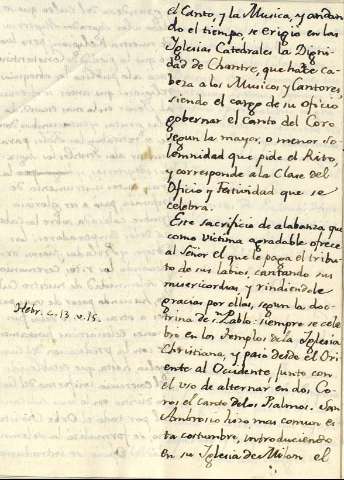 el Canto, y la Musica, y andan
do el tiempo, se erigio en las
Iglesias Catedrales la Digni
dad de Chantre, que hace ca
beza a los Musicos y Cantores,
siendo el cargo de su oficio
gobernar el Canto del Coro
segun la mayor, o menor so
lemnidad que pide el Rito,
y corresponde a la Clase del
Oficio y Festividad que se
celebra.
Este sacrificio de alabanza que
como victima agradable ofrece
al Señor el que le paga el tribu
to de sus labios, cantando sus
misericordias, y rindiendole
gracias por ellas, segun la doc-
Hebr. c. 13. v. 15.
trina de Sn. Pablo: siempre se cele
bró en los Templos de la Iglesia
Christiana, y paso desde el Ori
ente al Occidente junto con
el uso de alternar en dos Co
ros el canto de los Psalmos. San
Ambrosio hizo mas comun es
ta costumbre, introduciendo
en su Iglesia de Milan el